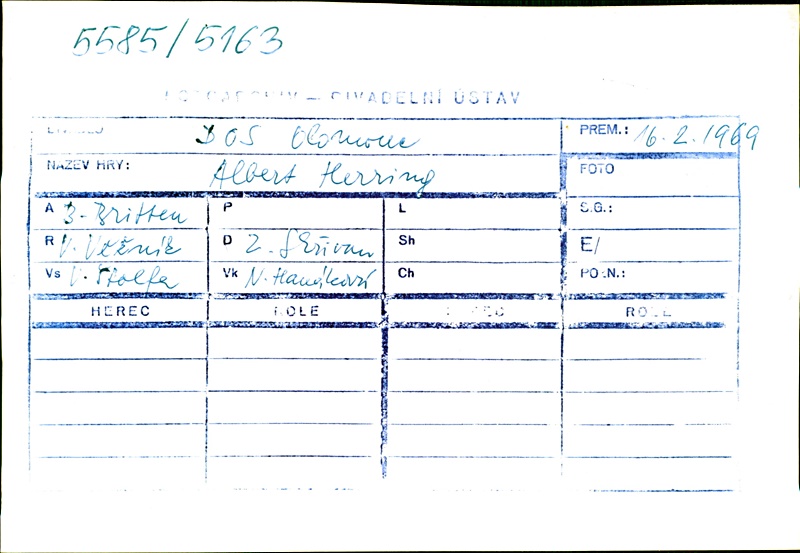 5585/5163
FOTOARCHIV — DIVADELNÍ ÚSTAV
DIVADLO DOS Olomouc PREM.: 16.2.1969
NÁZEV HRY: Albert Herring FOTO
A B. Britten P L S.G.:
R V. Věžník D Z. Skřivan Sh E/
Vs V. Štolfa Vk N. Hanáková Ch PO.N.:
HEREC ROLE HEREC ROLE